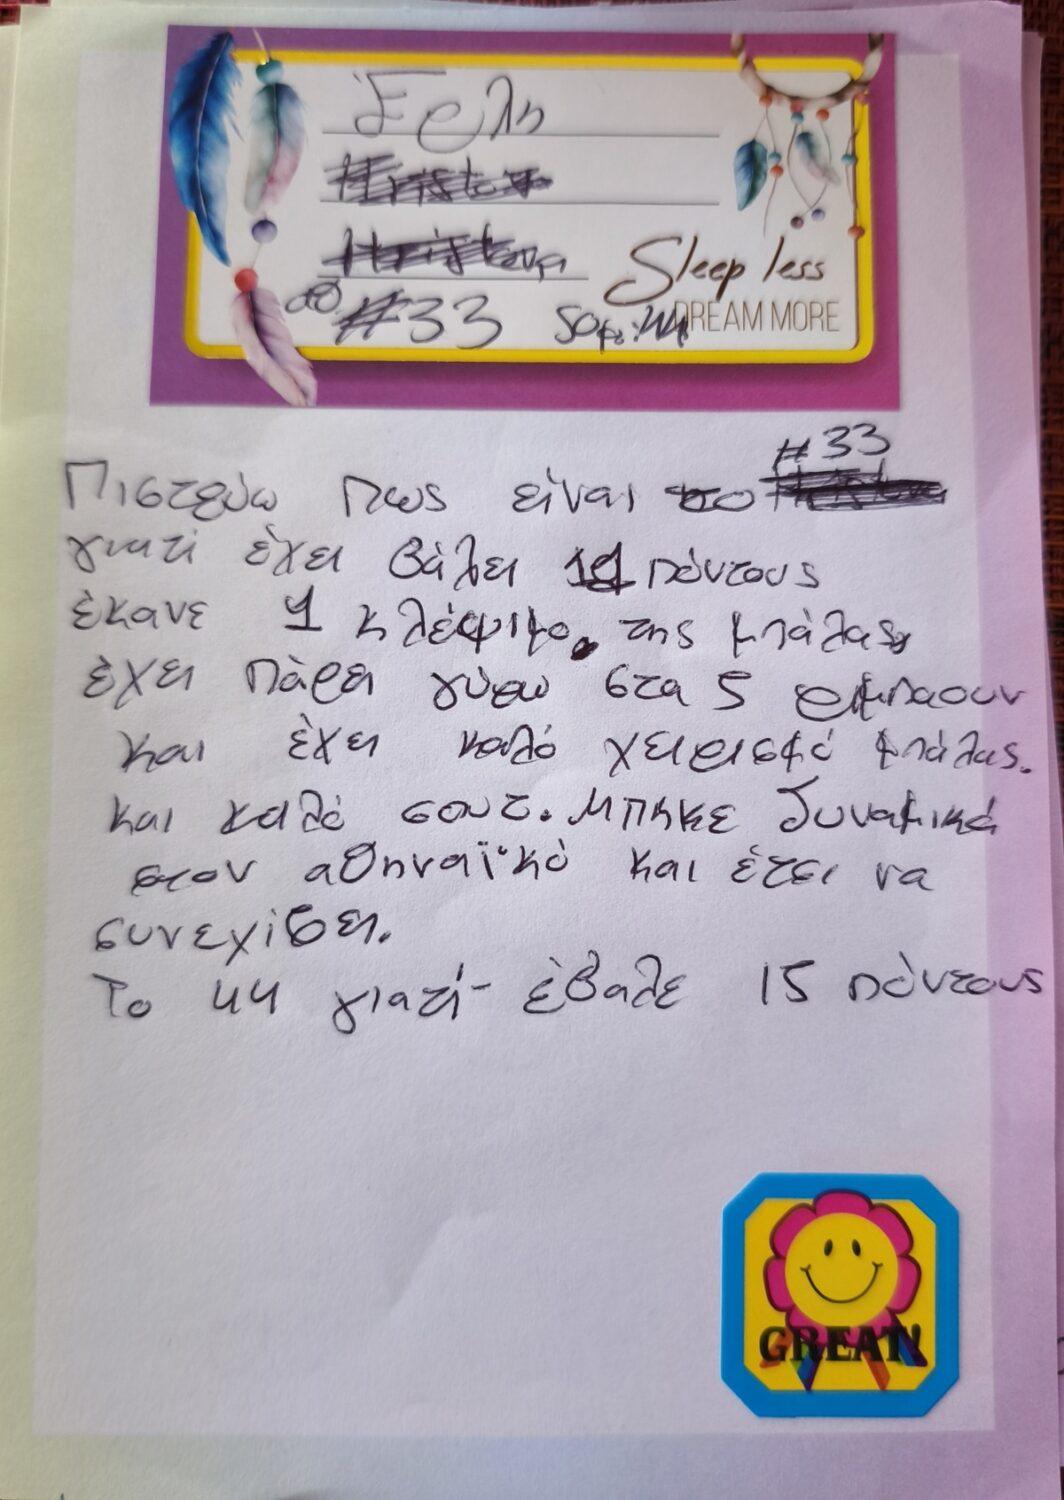 Έρλη
#33
Sleep less
DREAM MORE
#33
Πιστεύω πως είναι το
γιατί έχει βάλει πόντους
έκανε 1 κλέψιμο. της μπάλας,
έχει πάρει γύρω στα 5 ριμπαουν
και έχει καλό χειρισμό μπάλας.
και καλό σουτ. Μπηκε δυναμικά
στον αθηναϊκό και έτσι να
συνεχίσει.
Το 44 γιατί έβαλε 15 πόντους
GREAT!